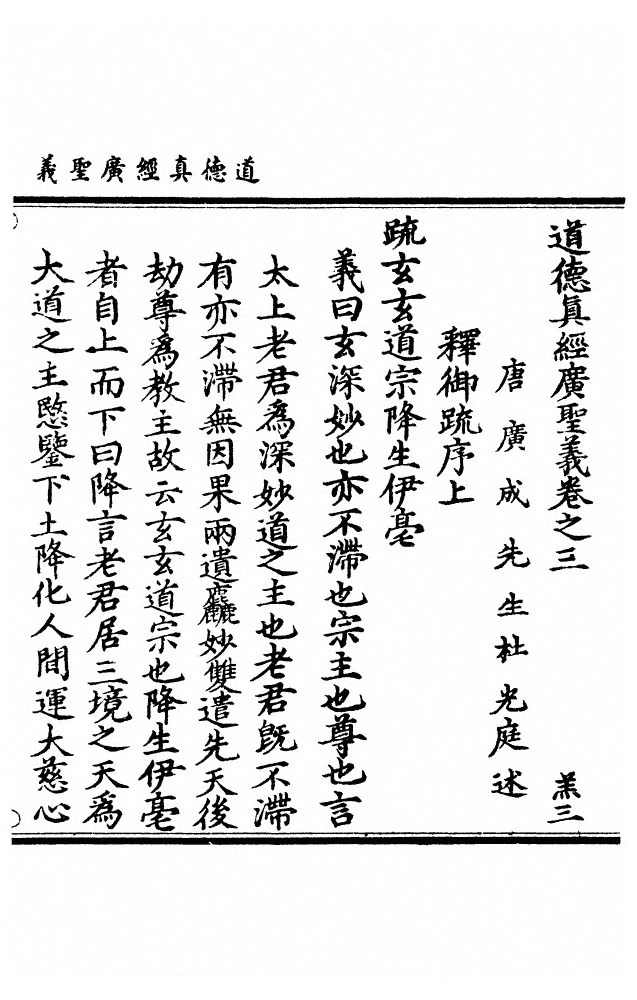 道德真經廣聖義
道德眞經廣聖義卷之三 羔三
唐廣成先生杜光庭述
釋御䟽序上
䟽玄玄道宗降生伊亳
義曰玄深妙也亦不滯也宗主也尊也言
太上老君爲深妙道之主也老君旣不滯
有亦不滯無因果兩遺麤妙雙遣先天後
劫尊爲教主故云玄玄道宗也降生伊亳
者自上而下曰降言老君居三境之天爲
大道之主愍鑒下土降化人間運大慈心